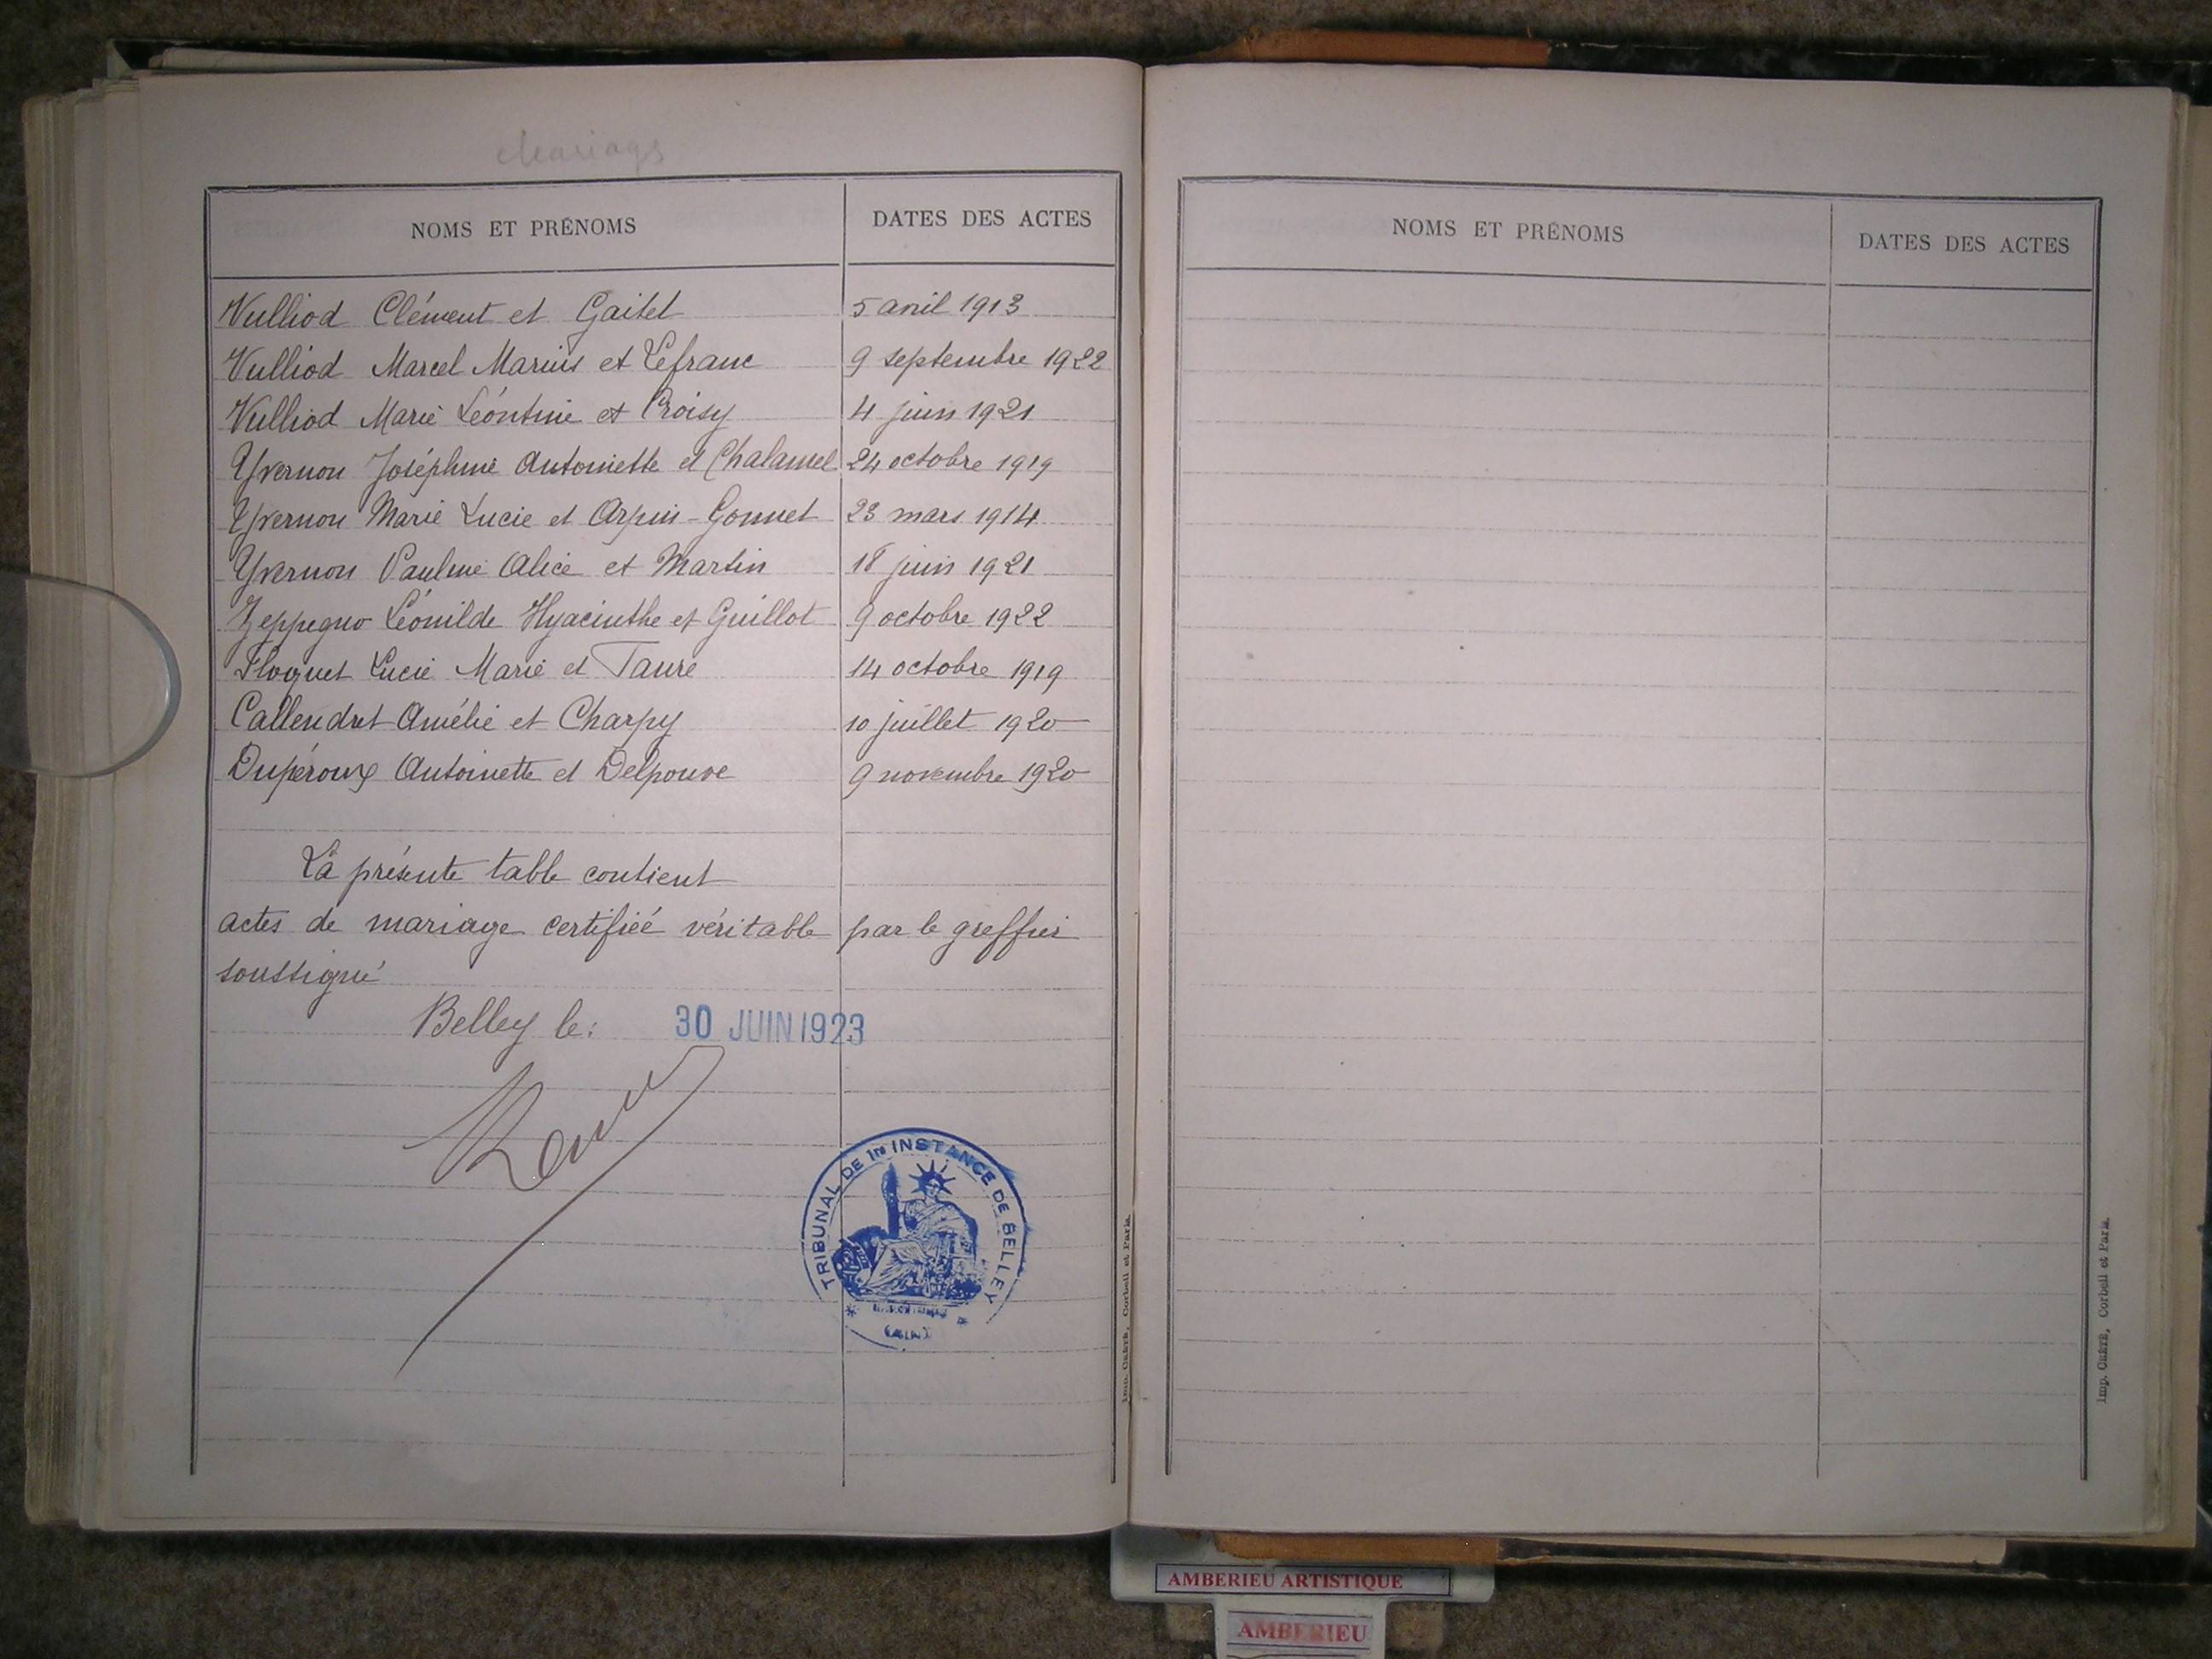 Mariages
NOMS ET PRÉNOMS
DATES DES ACTES
Vulliod Clément et Gaitet
5 avril 1913
Vulliod Marcel Marius et Lefranc
9 septembre 1922
Vulliod Marie Léontine et Croisy
4 juin 1921
Yvernon Joséphine Antoinette et Chalamel
24 octobre 1919
Yvernon Marie Lucie et Arpin-Gonnet
23 mars 1914
Yvernon Pauline Alice et Martin
18 juin 1921
Zeppegno Léonilde Hyacinthe et Guillot
9 octobre 1922
Lucie Marie et
14 octobre 1919
Callendret Amélie et Charpy
10 juillet 1920
Dupéroux Antoinette et Delpouve
9 novembre 1920
La présente table contient
actes de mariage certifiée véritable par le greffier
soussigné
Belley le: 30 JUIN 1923
TRIBUNAL DE 1re INSTANCE DE BELLEY
(AIN)
Imp. CRÉTÉ, Corbeil et Paris.
NOMS ET PRÉNOMS
DATES DES ACTES
Imp. CRÉTÉ, Corbeil et Paris.
AMBERIEU ARTISTIQUE
AMBERIEU